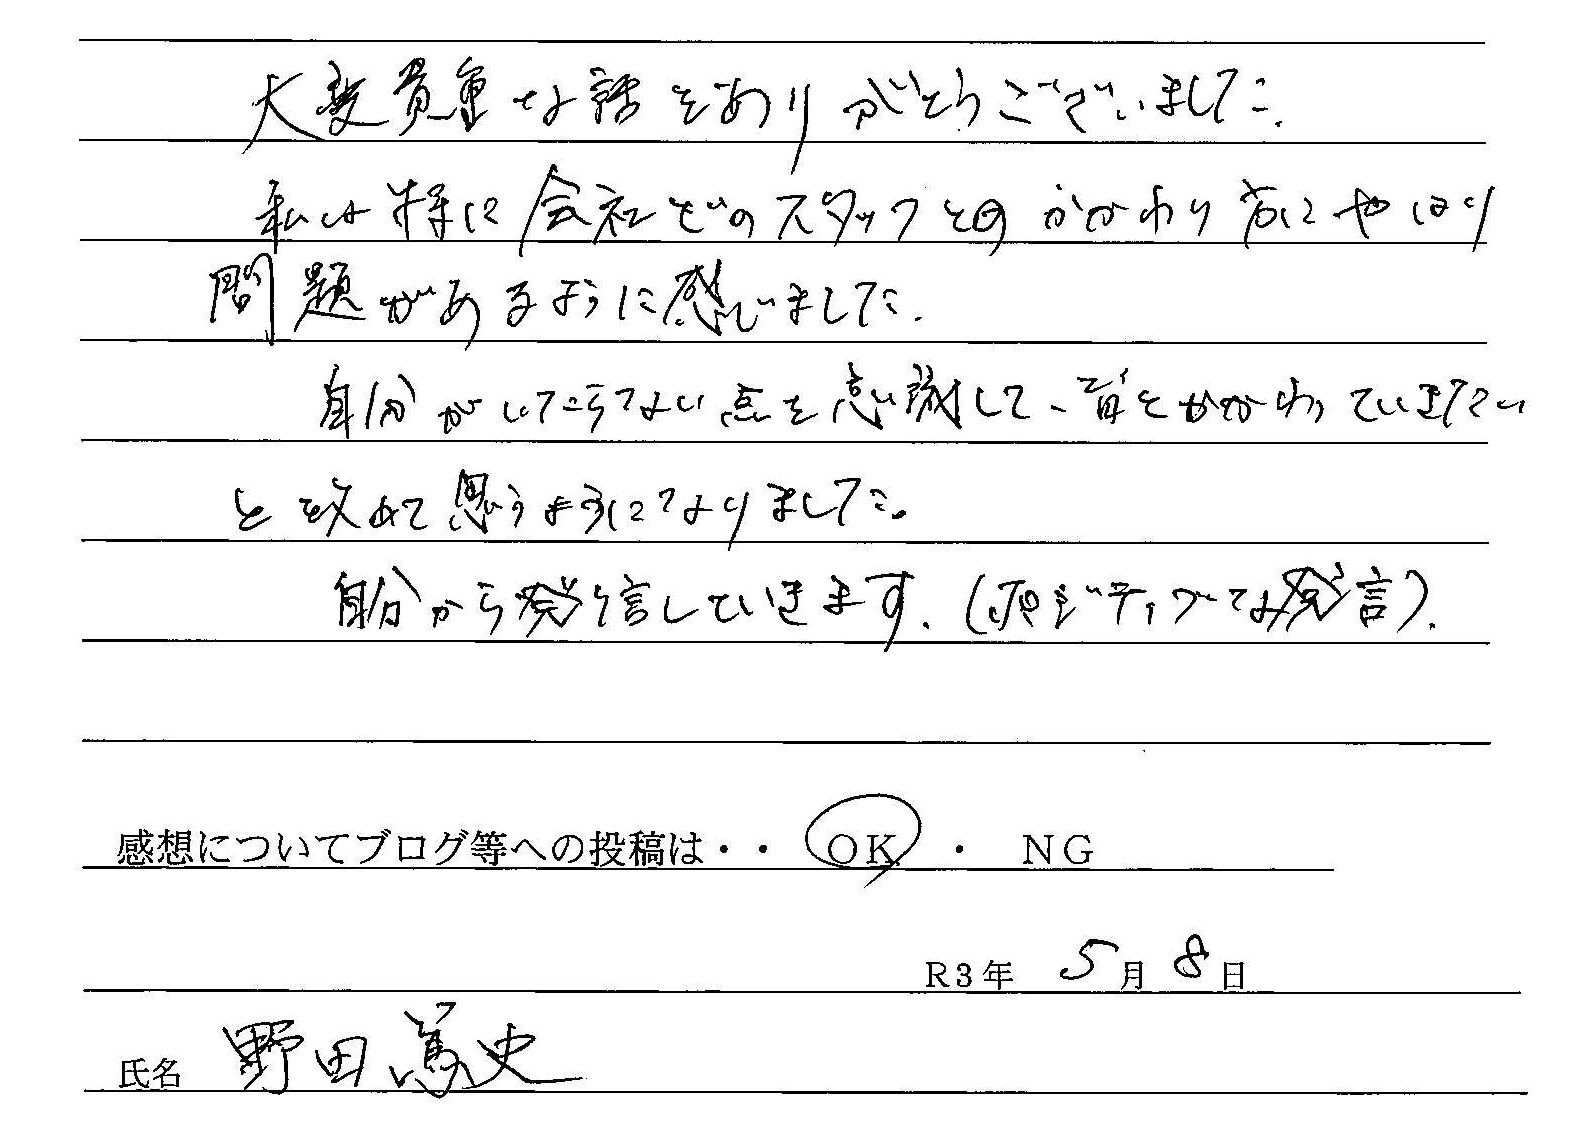 大変貴重な話をありがとうございました.
私は特に会社でのスタッフとのかかわり方にやはり
問題があるように感じました.
自分がいたらない点を意識して、皆とかかわっていきたい
と改めて思うようになりました。
自分から発信していきます.(ポジティブな発言).
感想についてブログ等への投稿は・・ OK ・ NG
R3年 5月8日
氏名 野田篤史